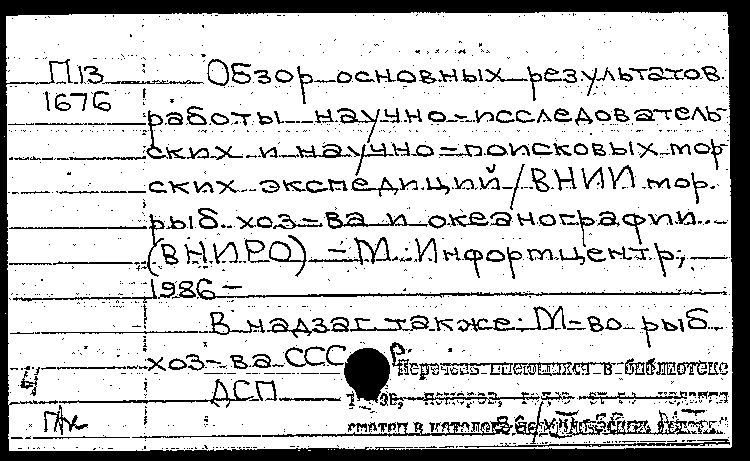 П13
1676
Обзор основных результатов
работы научно-исследователь
ских и научно-поисковых мор
ских экспедиций / ВНИИ мор.
рыб. хоз-ва и океанографии
(ВНИРО) - М.: Информцентр,
1986-
В надзаг. также: М-во рыб.
хоз-ва СССР.
ДСП
Перечень имеющихся в библиотеке
смотри в каталоге